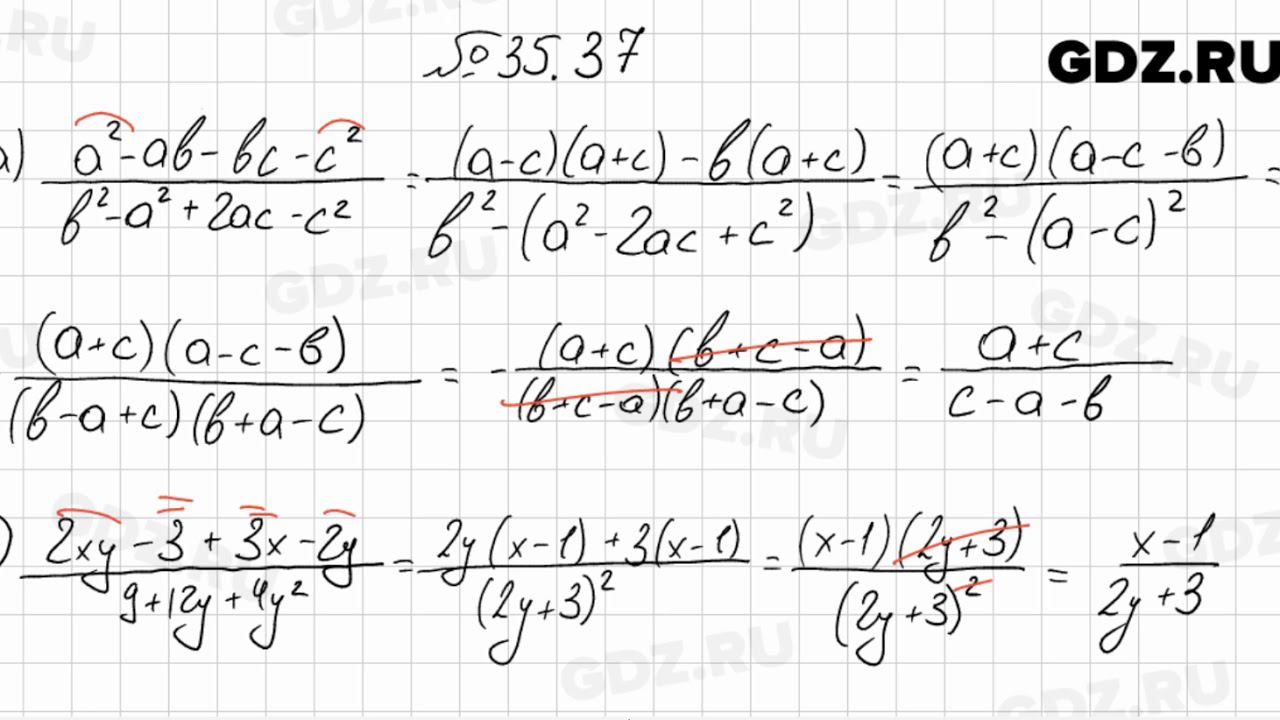 № 35.37
GDZ.RU
а) (a² - ab - bc - c²)/(b² - a² + 2ac - c²) = ((a-c)(a+c) - b(a+c))/(b² - (a² - 2ac + c²)) = ((a+c)(a-c-b))/(b² - (a-c)²) =
((a+c)(a-c-b))/((b-a+c)(b+a-c)) = -((a+c)(b+c-a))/((b+c-a)(b+a-c)) = (a+c)/(c-a-b)
) (2xy - 3 + 3x - 2y)/(9 + 12y + 4y²) = (2y(x-1) + 3(x-1))/((2y+3)²) = ((x-1)(2y+3))/((2y+3)²) = (x-1)/(2y+3)